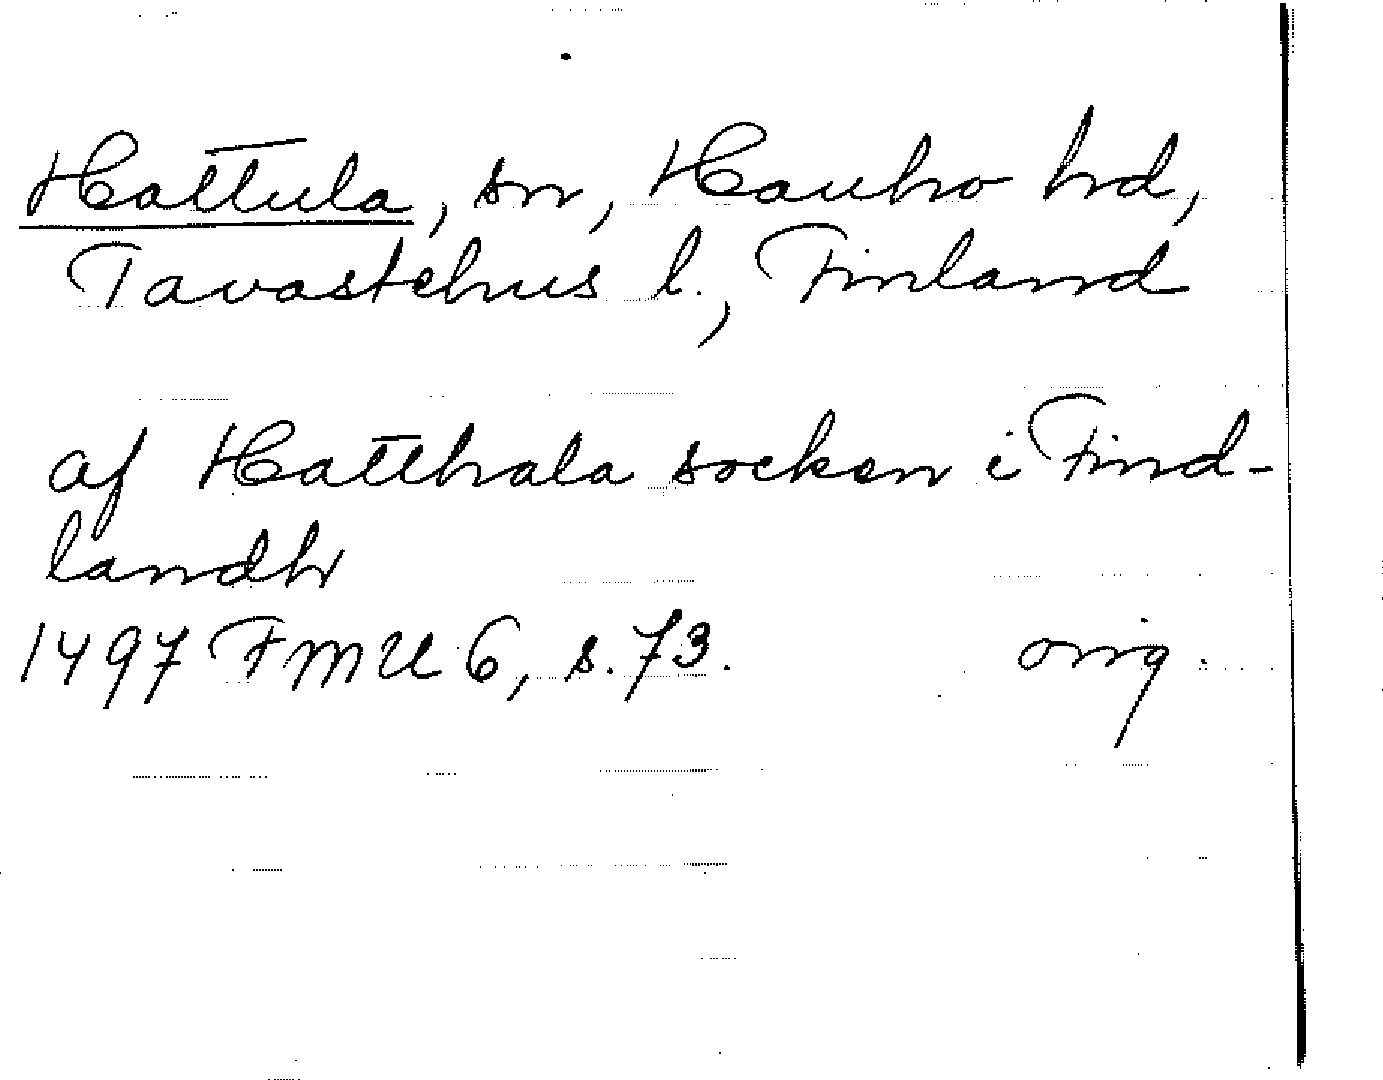 Hattula, sn, Hauho hd,
Tavastehus l., Finland
af Hatthala socken i Find-
landh
1497 FMU 6, s. 73. orig.